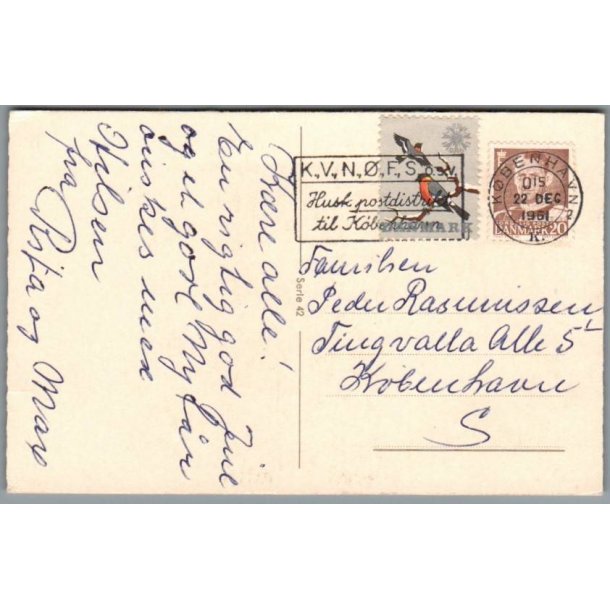 Kære alle!
En rigtig god Jul
og et godt Nytår
ønskes med
Hilsen
fra Pista og Max
Serie 42
K., V., N., Ø., F., S. o.s.v.
Husk postdistrikt
til København
DANMARK
KØBENHAVN
OIS
22 DEC
1961
K.
2
DANMARK 20
Familien
Peder Rasmussen
Tingvalla Alle 5
København
S